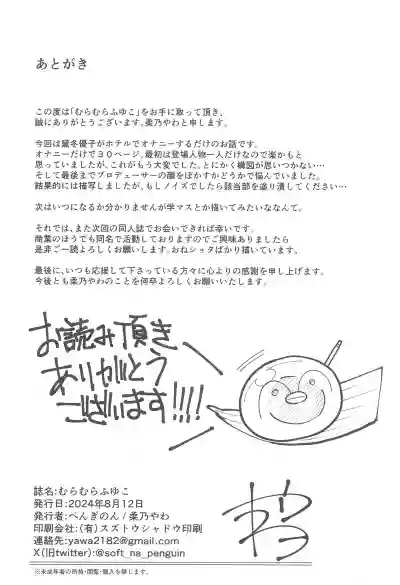 あとがき
この度は「むらむらふゆこ」をお手に取って頂き、
誠にありがとうございます。柔乃やわと申します。
今回は黛冬優子がホテルでオナニーするだけのお話です。
オナニーだけで30ページ。最初は登場人物一人だけなので楽かもと
思っていましたが、これがもう大変でした。とにかく構図が思いつかない…
そして最後までプロデューサーの顔をぼかすかどうかで悩んでいました。
結果的には描写しましたが、もしノイズでしたら該当部を塗り潰してください…
次はいつになるか分かりませんが学マスとか描いてみたいななんて。
それでは、また次回の同人誌でお会いできれば幸いです。
商業のほうでも同名で活動しておりますのでご興味ありましたら
是非ご一読よろしくお願いします。おねショタばかり描いています。
最後に、いつも応援して下さっている方々に心よりの感謝を申し上げます。
今後とも柔乃やわのことを何卒よろしくお願いいたします。
お読み頂き
ありがとう
ございます!!!!
誌名:むらむらふゆこ
発行日:2024年8月12日
発行者:ぺんぎのん/柔乃やわ
印刷会社:(有)スズトウシャドウ印刷
連絡先:yawa2182@gmail.com
X(旧twitter):@soft_na_penguin
※未成年者の所持・閲覧・購入を禁じます。